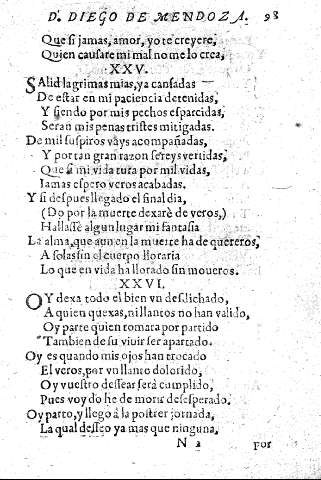 D. DIEGO DE MENDOZA. 98
Que si jamas, amor, yo te creyere,
Quien causare mi mal no me lo crea,
XXV.
SAlid lagrimas mias, ya cansadas
De estar en mi paciencia detenidas,
Y siendo por mis pechos esparcidas,
Seran mis penas tristes mitigadas.
De mil suspiros vays acompañadas,
Y por tan gran razon sereys vertidas,
Que si mi vida tura por mil vidas,
Iamas espero veros acabadas.
Y si despues llegado el final dia,
(Do por la muerte dexarè de veros,)
Hallasse algun lugar mi fantasia
La alma, que aun en la muerte ha de quereros,
A solas sin el cuerpo lloraria
Lo que en vida ha llorado sin moueros.
XXVI.
OY dexa todo el bien vn desdichado,
A quien quexas, ni llantos no han valido,
Oy parte quien tomara por partido
Tambien de su viuir ser apartado.
Oy es quando mis ojos han trocado
El veros, por vn llanto dolorido,
Oy vuestro dessear serà cumplido,
Pues voy do he de morir desesperado.
Oy parto, y llego à la postrer jornada,
La qual desseo ya mas que ninguna,
N 2 por